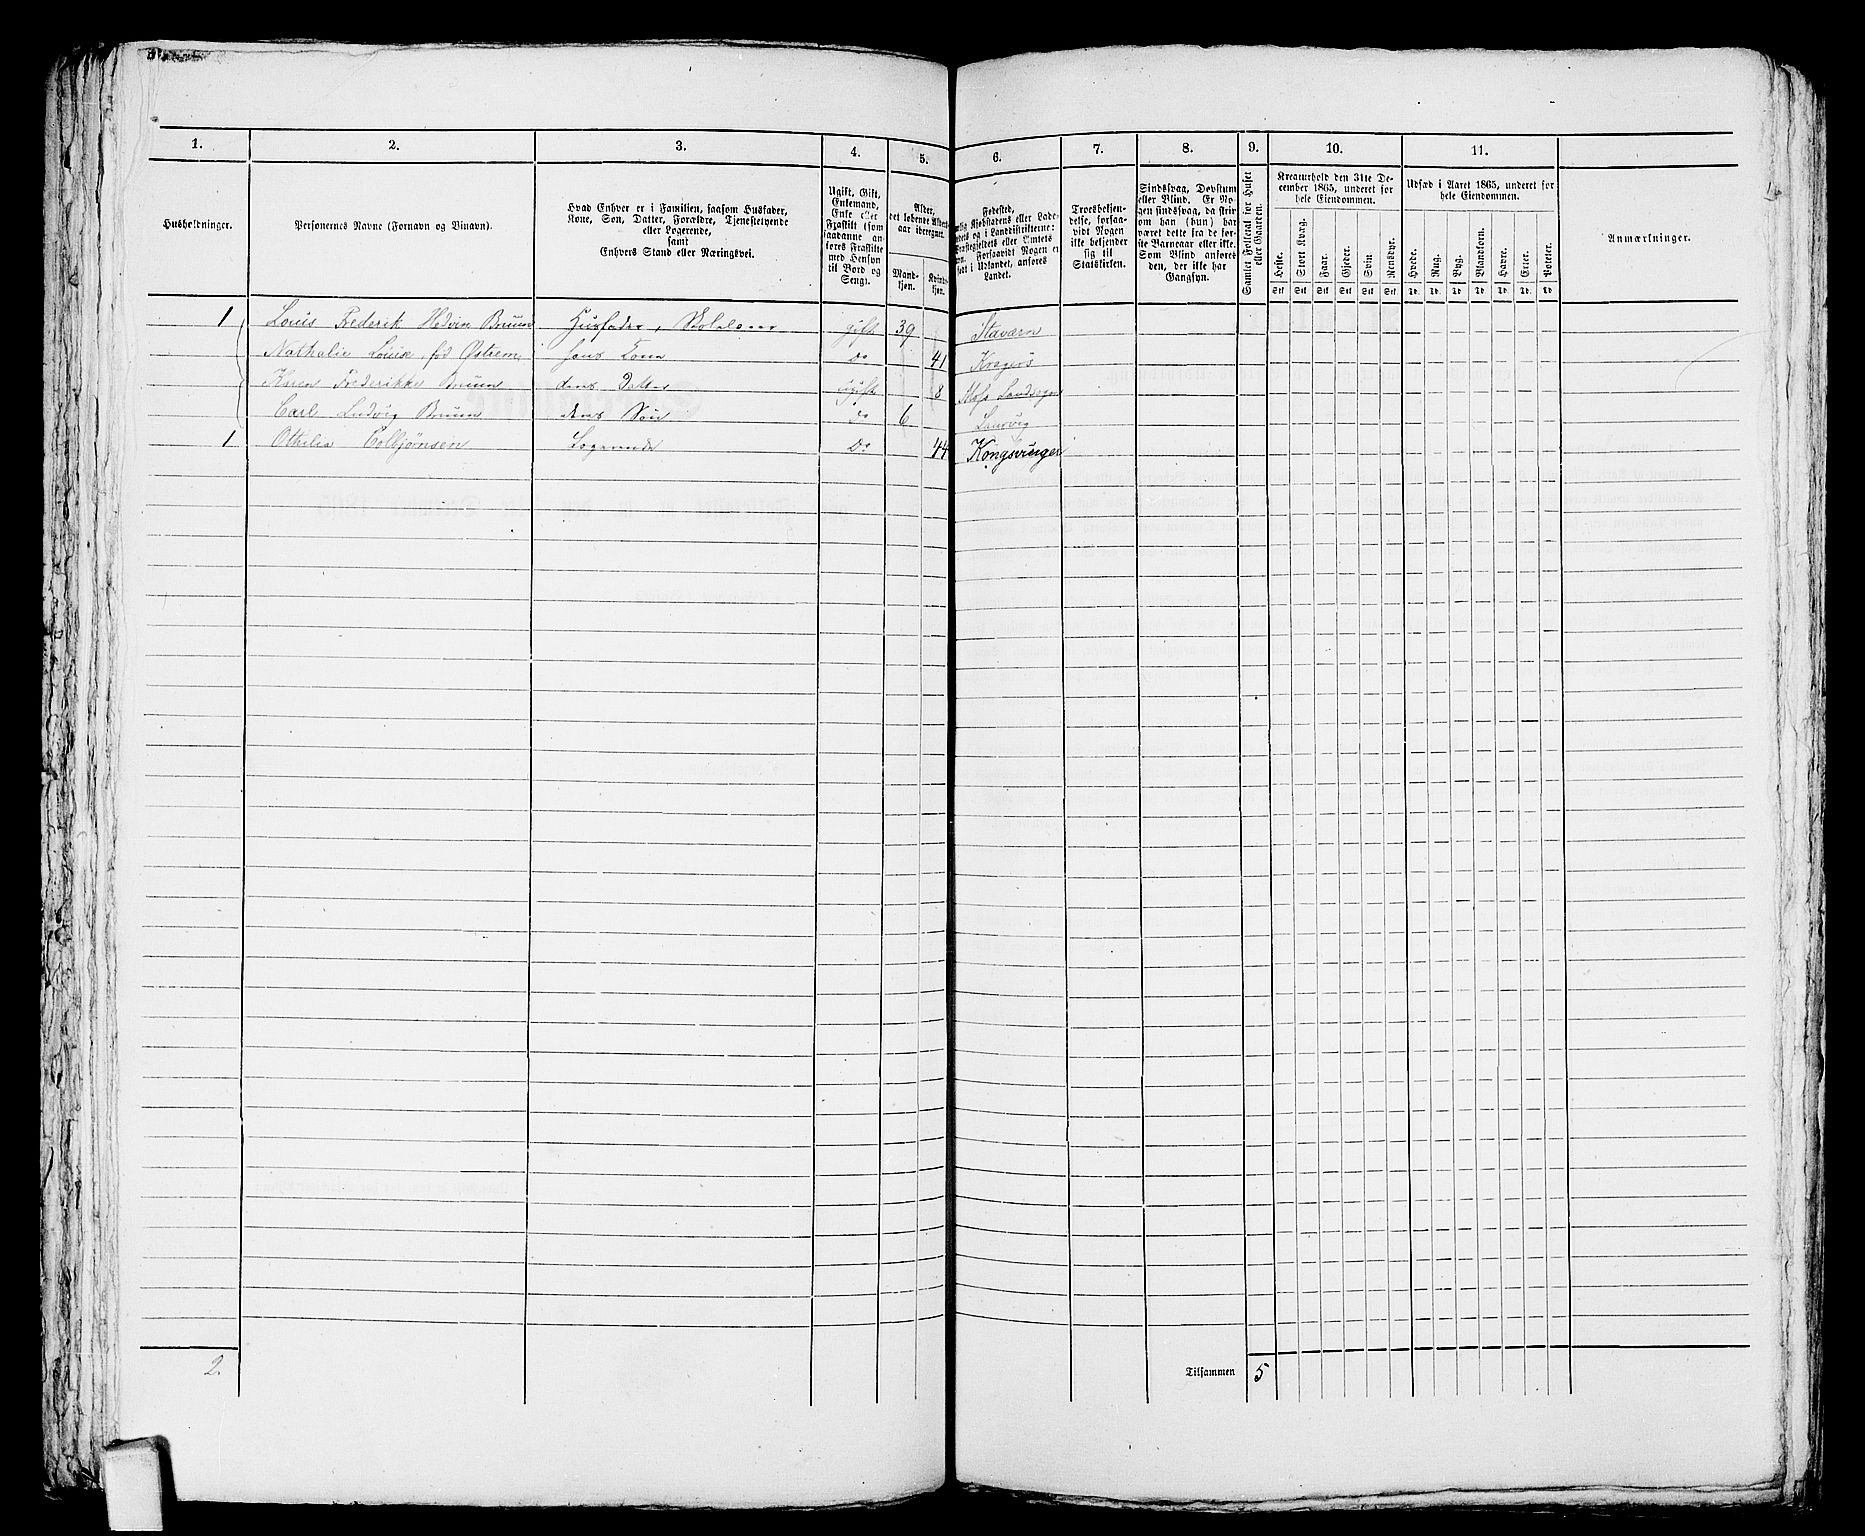 1. 2. 3. 4. 5. 6. 7. 8. 9. 10. 11.
Husholdninger.
Personernes Navne (Fornavn og Vinavn).
Hvad Enhver er i Familien, saasom Husfader,
Kone, Søn, Datter, Forældre, Tjenestetyende
eller Logerende,
samt
Enhvers Stand eller Næringsvei.
Ugift, Gift,
Enkemand,
Enke eller
Fraskilt (som
saadanne an-
føres Fraskilte
med Hensyn
til Bord og
Seng).
Alder,
det løbende Alders-
aar iberegnet.
Mand-
kjøn.
Kvinde-
kjøn.
Fødested,
Kjøbstadens eller Lade-
og i Landdistrikterne:
Præstegjeldets eller Amtets
Forsaavidt Nogen er
født i Udlandet, anføres
Landet.
Troesbekjen-
delse, forsaa-
vidt Nogen
ikke bekjender
sig til
Statskirken.
Sindssvag, Døvstum
eller Blind. Er No-
gen sindssvag, da skriv
om han (hun) har
været dette fra de før-
ste Barneaar eller ikke.
Som Blind anføres
den, der ikke har
Gangsyn.
Samlet Folketal for Huset
eller Gaarden.
Kreaturhold den 31te De-
cember 1865, underet for
hele Eiendommen.
Heste. Stort Kvæg. Faar. Gjeder. Svin Rensdyr.
Stk Stk Stk Stk Stk Stk
Udsæd i Aaret 1865, underet for
hele Eiendommen.
Hvede. Rug. Byg. Blandkorn. Havre. Erter. Poteter.
Td. Td. Td Td Td. Td. Td
Anmærkninger.
1 Louis Frederik Hedvin Bruun Husfader, Skolelærer gift 39 Staværn
Nathalie Louise, fød Østrem, hans Kone Do 41 Kragerø
Karen Frederikke Bruun deres Datter Ugift 8 Moss
Carl Ludvig Bruun deres Søn Do 6 Laurvig
1 Othilia Colbjørnsen Logerende Do 44 Kongsvinger
2. Tilsammen 5